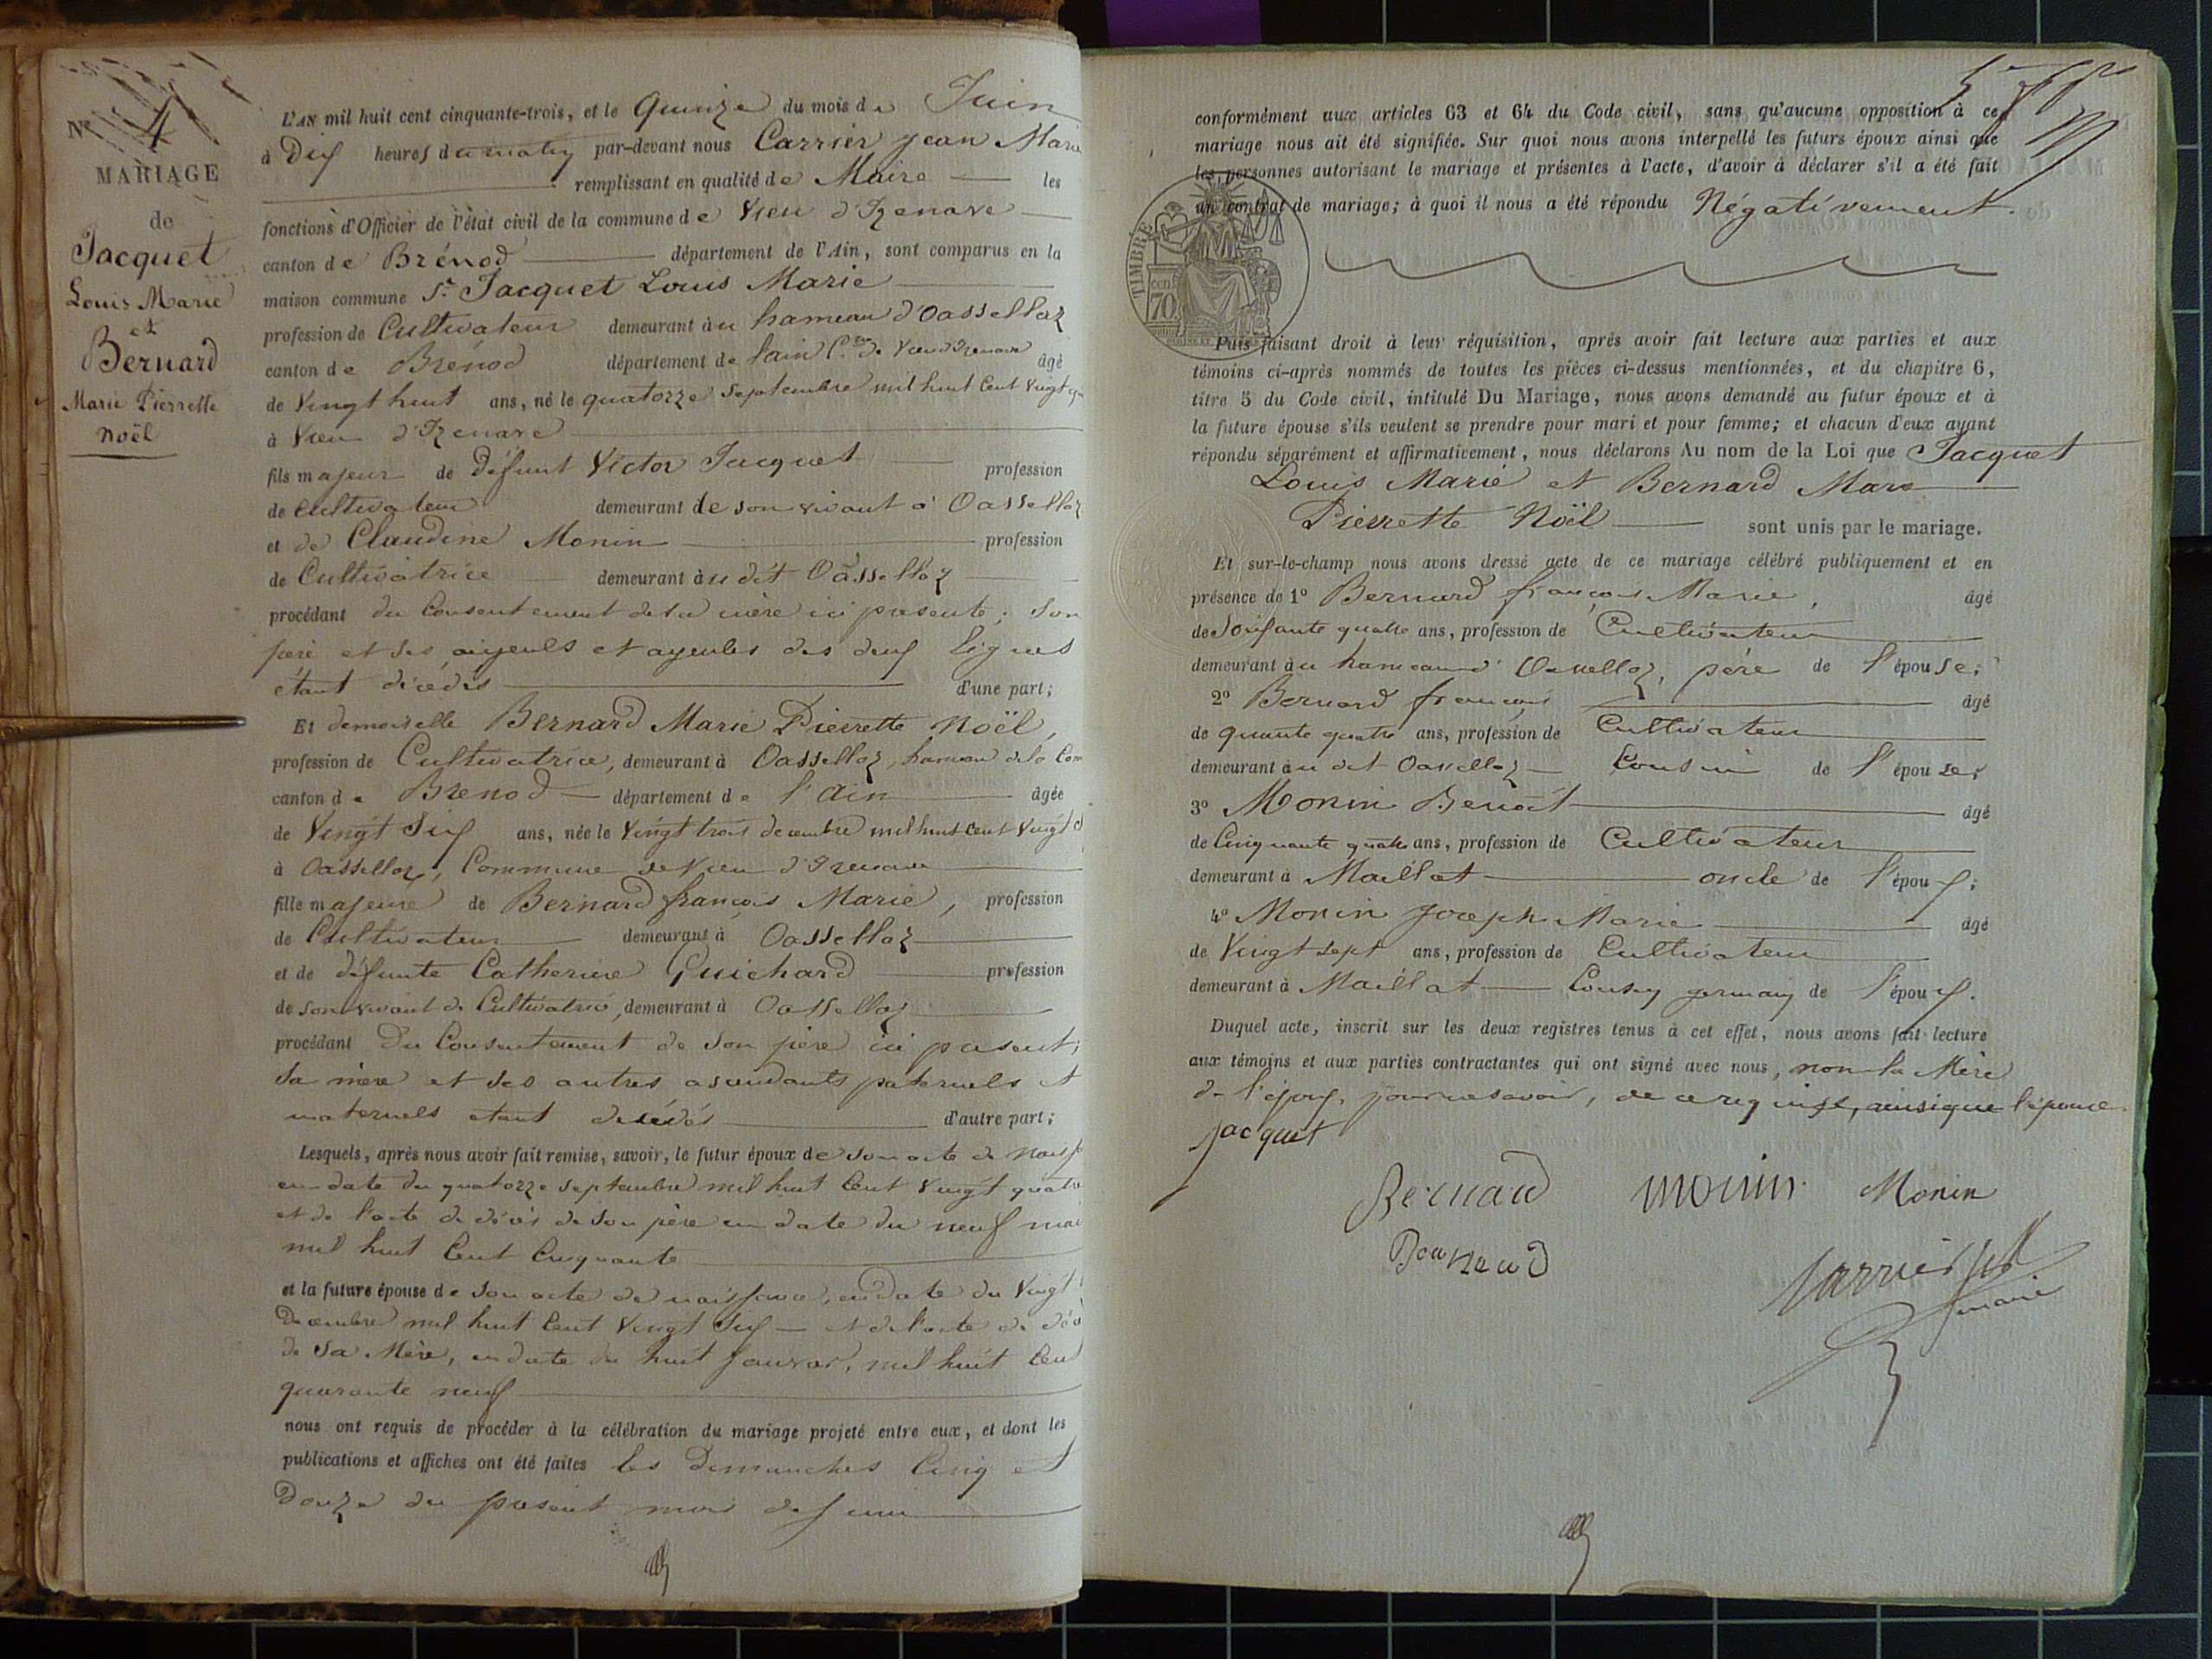 No 4
MARIAGE
de
Jacquet
Louis Marie
et
Bernard
Marie Pierrette
Noël
L'AN mil huit cent cinquante-trois, et le Quinze du mois de Juin
à Dix heures du matin par-devant nous Carrier Jean Marie
remplissant en qualité de Maire les
fonctions d'Officier de l'état civil de la commune de Vieu d'Izenave
canton de Brénod département de l'Ain, sont comparus en la
maison commune Sr. Jacquet Louis Marie
profession de Cultivateur demeurant au hameau d'Oassellaz
canton de Brénod département de l'ain Cne de Vieu d'Izenave âgé
de Vingt huit ans, né le quatorze Septembre mil huit Cent Vingt
à Vieu d'Izenave
fils majeur de Défunt Victor Jacquet profession
de Cultivateur demeurant de son vivant à Oassellaz
et de Claudine Monin profession
de Cultivatrice demeurant au dit Oassellaz
procédant du Consentement de sa mère ici présente; Son
père et ses ayeuls et ayeules des deux lignes
étant décédés d'une part;
Et demoiselle Bernard Marie Pierrette Noël,
profession de Cultivatrice, demeurant à Oassellaz, hameau de la Com
canton de Brenod département de l'Ain âgée
de Vingt Six ans, née le Vingt trois decembre mil huit Cent Vingt
à Oassellaz, Commune de Vieu d'Izenave
fille majeure de Bernard françois Marie, profession
de Cultivateur demeurant à Oassellaz
et de défunte Catherine Guichard profession
de son vivant de Cultivatrice, demeurant à Oassellaz
procédant Du Consentement de Son père ici présent;
Sa mère et ses autres ascendants paternels et
maternels étant décédés d'autre part;
Lesquels, après nous avoir fait remise, savoir, le futur époux de son acte de Naiss
en date du quatorze Septembre mil huit Cent Vingt quatre
et de l'acte de décès de son père en date du neuf mai
mil huit Cent Cinquante
et la future épouse de Son acte de naissance, en date du Vingt
Decembre mil huit Cent Vingt Six et de l'acte de déc
de Sa Mère, en date du huit Janvier, mil huit Cent
quarante neuf
nous ont requis de procéder à la célébration du mariage projeté entre eux, et dont les
publications et affiches ont été faites les Dimanches Cinq et
Douze du présent mois de Juin
conformément aux articles 63 et 64 du Code civil, sans qu'aucune opposition à ce
mariage nous ait été signifiée. Sur quoi nous avons interpellé les futurs époux ainsi que
les personnes autorisant le mariage et présentes à l'acte, d'avoir à déclarer s'il a été fait
un contrat de mariage; à quoi il nous a été répondu Négativement.
TIMBRE
cen 70
Puis faisant droit à leur réquisition, après avoir fait lecture aux parties et aux
témoins ci-après nommés de toutes les pièces ci-dessus mentionnées, et du chapitre 6,
titre 5 du Code civil, intitulé Du Mariage, nous avons demandé au futur époux et à
la future épouse s'ils veulent se prendre pour mari et pour femme; et chacun d'eux ayant
répondu séparément et affirmativement, nous déclarons Au nom de la Loi que Jacquet
Louis Marie et Bernard Mare
Pierrette Noël sont unis par le mariage.
Et sur-le-champ nous avons dressé acte de ce mariage célébré publiquement et en
présence de 1° Bernard françois Marie, âgé
de Soixante quatre ans, profession de Cultivateur
demeurant au hameau d'Oassellaz, père de l'épouse;
2° Bernard françois âgé
de quarante quatre ans, profession de Cultivateur
demeurant au dit Oassellaz Cousin de l'épouse;
3° Monin Benoit âgé
de Cinquante quatre ans, profession de Cultivateur
demeurant à Maillat oncle de l'époux;
4° Monin Joseph Marie âgé
de Vingt Sept ans, profession de Cultivateur
demeurant à Maillat Cousin germain de l'époux.
Duquel acte, inscrit sur les deux registres tenus à cet effet, nous avons fait lecture
aux témoins et aux parties contractantes qui ont signé avec nous, non la Mère
de l'époux, pour ne savoir, de ce requise, ainsi que l'épouse.
Jacquet
Bernard monin Monin
Bernard
Carrier
maire